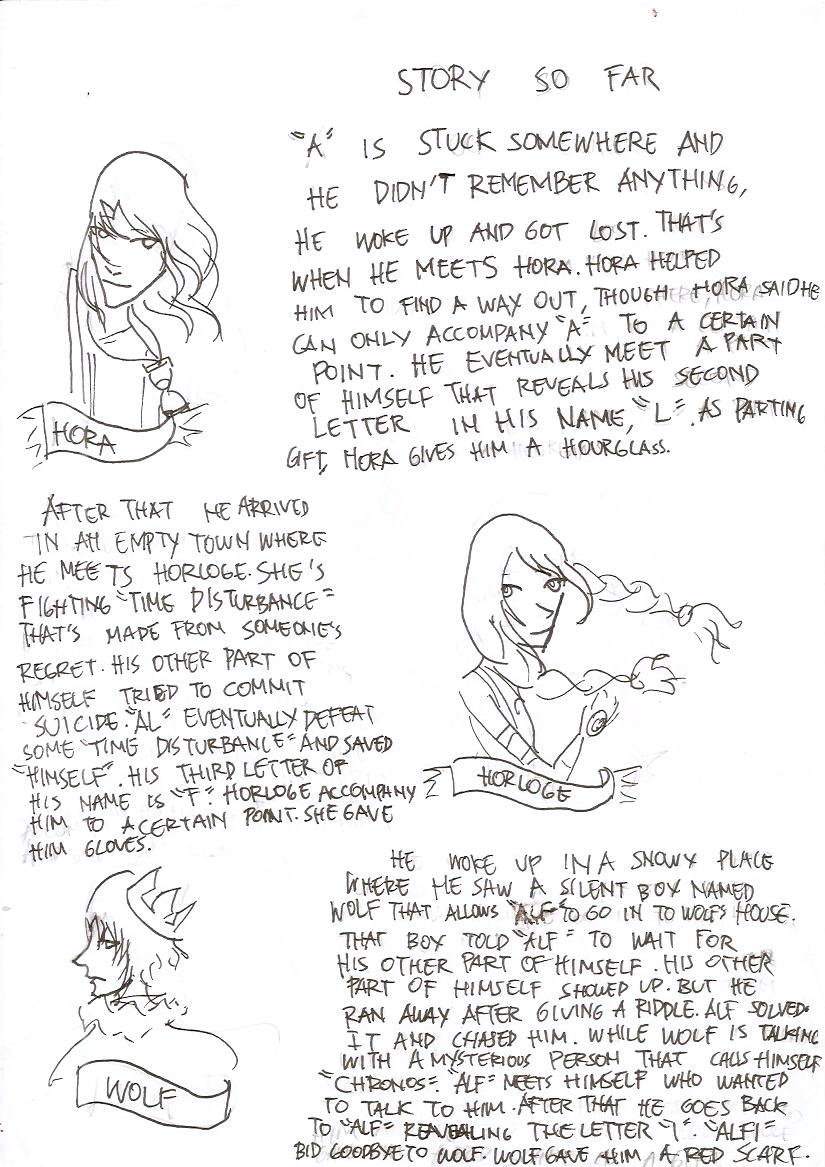 STORY SO FAR
"A" IS STUCK SOMEWHERE AND
HE DIDN'T REMEMBER ANYTHING,
HE WOKE UP AND GOT LOST. THAT'S
WHEN HE MEETS HORA. HORA HELPED
HIM TO FIND A WAY OUT, THOUGH HORA SAID HE
CAN ONLY ACCOMPANY "A" TO A CERTAIN
POINT. HE EVENTUALLY MEET A PART
OF HIMSELF THAT REVEALS HIS SECOND
LETTER IN HIS NAME, "L". AS PARTING
GIFT, HORA GIVES HIM A HOURGLASS.
HORA
AFTER THAT HE ARRIVED
IN AN EMPTY TOWN WHERE
HE MEETS HORLOGE. SHE'S
FIGHTING "TIME DISTURBANCE"
THAT'S MADE FROM SOMEONE'S
REGRET. HIS OTHER PART OF
HIMSELF TRIED TO COMMIT
SUICIDE. "AL" EVENTUALLY DEFEAT
SOME "TIME DISTURBANCE" AND SAVED
"HIMSELF". HIS THIRD LETTER OF
HIS NAME IS "F". HORLOGE ACCOMPANY
HIM TO A CERTAIN POINT. SHE GAVE
HIM GLOVES.
HORLOGE
HE WOKE UP IN A SNOWY PLACE
WHERE HE SAW A SILENT BOY NAMED
WOLF THAT ALLOWS "ALF" TO GO IN TO WOLF'S HOUSE.
THAT BOY TOLD "ALF" TO WAIT FOR
HIS OTHER PART OF HIMSELF. HIS OTHER
PART OF HIMSELF SHOWED UP. BUT HE
RAN AWAY AFTER GIVING A RIDDLE. ALF SOLVED
IT AND CHASED HIM. WHILE WOLF IS TALKING
WITH A MYSTERIOUS PERSON THAT CALLS HIMSELF
"CHRONOS". "ALF" MEETS HIMSELF WHO WANTED
TO TALK TO HIM. AFTER THAT HE GOES BACK
TO "ALF" REVEALING THE LETTER "I". "ALFI"
BID GOODBYE TO WOLF. WOLF GAVE HIM A RED SCARF.
WOLF